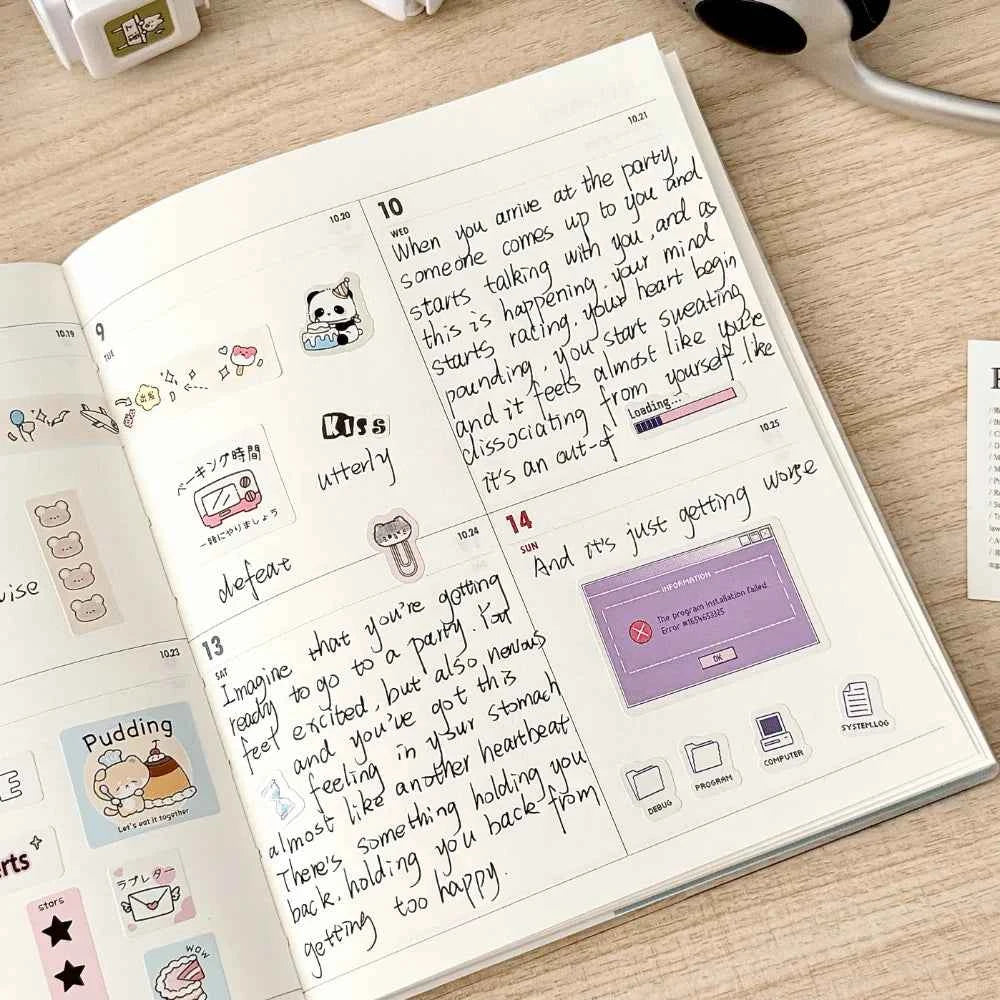 10.19
wise
10.23
Pudding
Let's eat it together
ラブレター
stars
WOW
10.20
9
TUE
出発
KISS
ベーキング時間
一緒にやりましょう
utterly
defeat
10.21
10
WED
When you arrive at the party,
someone comes up to you and
starts talking with you, and as
this is happening. your mind
starts rating. your heart begin
pounding, you start sweating
and it feels almost like you're
dissociating from yourself. like
it's an out-of
Loading...
10.24
13
SAT
Imagine that you're getting
ready to go to a party. You
feel excited, but also nervous
and you've got this
feeling in your stomach
almost like another heartbeat
There's something holding you
back. holding you back from
getting too happy.
10.25
14
SUN
And it's just getting worse
INFORMATION
The program installation failed
OK
DEBUG
PROGRAM
COMPUTER
SYSTEM.LOG